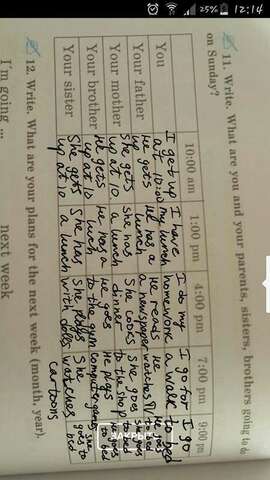 25% 12:14
11. Write. What are you and your parents, sisters, brothers going to do
on Sunday?
10:00 am 1:00 pm 4:00 pm 7:00 pm 9:00 pm
You I get up I have I do my I go for I go
at 10:00 my lunch homework a walk to bed
Your father He gets He has a He reads He He goes
up lunch a newspaper watches TV to bed
Your mother She gets She has She cooks She goes She goes
up at 10 a lunch dinner to the shop to bed
Your brother He gets He has a He goes He plays He goes
up at 10 lunch to the gym computer games to bed
Your sister She gets She has She plays She watches She goes to
up at 10 a lunch with dolls cartoons bed
12. Write. What are your plans for the next week (month, year).
I'm going ... next week
ЗАКРЫТЬ